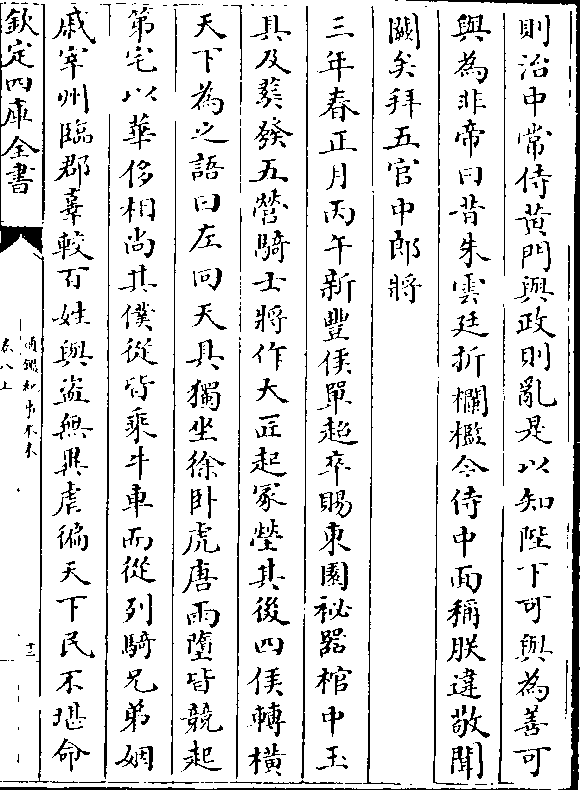 則治中常侍黄門與政則亂是以知陛下可與為善可
與為非帝曰昔朱雲廷折欄檻今侍中面稱朕違敬聞
闕矣拜五官中郎將
三年春正月丙午新豐侯單超卒賜東園祕器棺中玉
具及葬發五營騎士將作大匠起冢塋其後四侯轉橫
天下為之語曰左回天具獨坐徐卧虎唐雨墮皆競起
第宅以華侈相尚其僕從皆乘牛車而從列騎兄弟姻
戚宰州臨郡辜較百姓與盜無異虐徧天下民不堪命
欽定四庫全書
通鑑紀事本末
卷八上